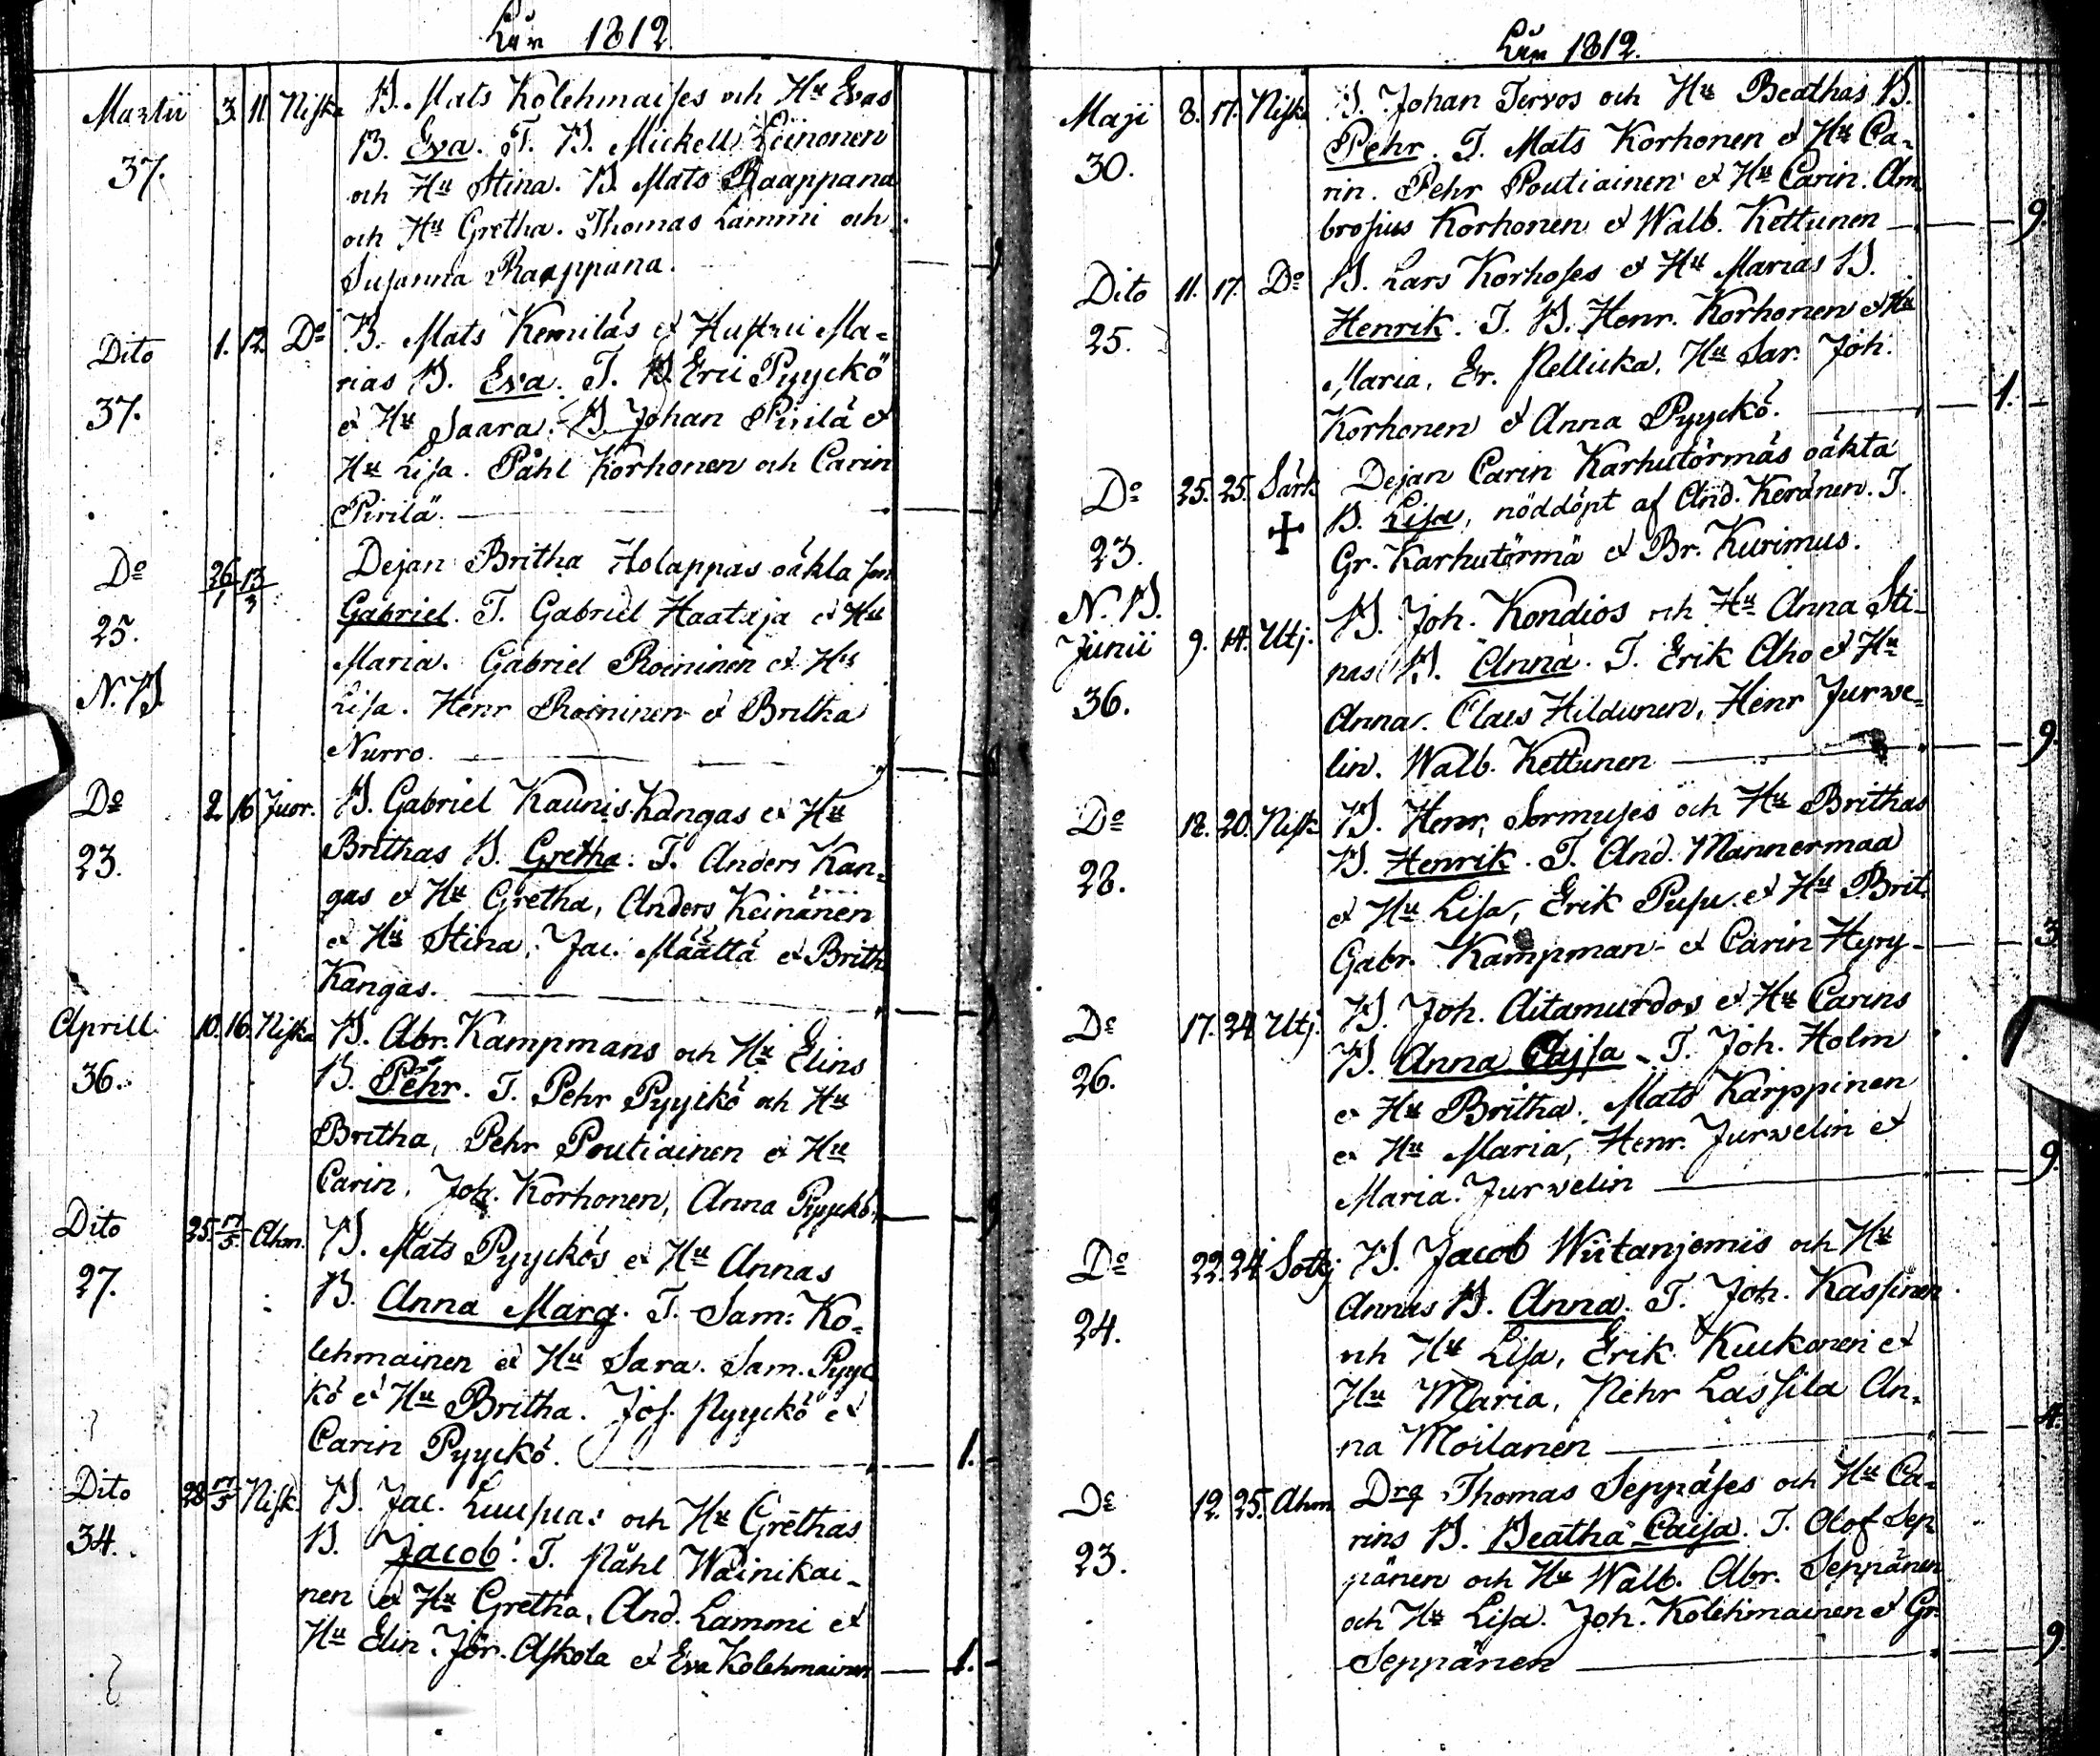 Åhr 1812
Martii 3. 11 Niska B. Mats Kolehmaises och Hu Evas
37. B. Eva. T. B. Mickell Leinonen
och Hu Stina. B. Mats Raappana
och Hu Gretha. Thomas Lammi och
Susanna Raappana.
Dito 1. 12. Do B. Mats Kemiläs et Hustru Ma-
37. rias B. Eva. T. B. Eric Pyyckö
et Hu Saara. B. Johan Pirilä et
Hu Lisa. Påhl Korhonen och Carin
Pirilä.
Do 26/1 13/3 Dejan Britha Holappas oäkta son
25. Gabriel. T. Gabriel Haataja et Hu
N.B. Maria. Gabriel Roininen et Hu
Lisa. Henr Roininen et Britha
Nurro.
Do 2. 16 Juor. B. Gabriel Kauniskangas et Hu
23. Brithas B. Gretha. T. Anders Kan-
gas et Hu Gretha, Anders Keinänen
et Hu Stina. Jac. Määttä et Brith
Kangas.
Aprill 10. 16. Niska B. Abr. Kampmans och Hu Elins
36. B. Pehr. T. Pehr Pyyckö och Hu
Britha, Pehr Poutiainen et Hu
Carin, Joh. Korhonen, Anna Pyyckö.
Dito 25. 17/5 Ahm. B. Mats Pyyckös et Hu Annas
27. B. Anna Marg. T. Sam: Ko-
lehmainen et Hu Sara. Sam. Pyyc
kö et Hu Britha. Jos. Pyyckö et
Carin Pyyckö. 1.
Dito 28 17/5 Nisk. B. Jac. Luusuas och Hu Grethas
34. B. Jacob. T. Påhl Wäinikai-
nen et Hu Gretha, And. Lammi et
Hu Elin. Jör. Askola et Eva Kolehmainen 1.
Åhr 1812.
Maji 8. 17. Niska B. Johan Tervos och Hu Beathas B.
30. Pehr. T. Mats Korhonen et Hu Ca-
rin. Pehr Poutiainen et Hu Carin. Am
brosius Korhonen et Walb. Kettunen 9.
Dito 11. 17. Do B. Lars Korhoses et Hu Marias B.
25. Henrik. T. B. Henr. Korhonen et Hu
Maria, Er. Pellicka, Hu Sar. Joh.
Korhonen et Anna Pyyckö. 1.
Do 25. 25. Särk Dejan Carin Karhutörmäs oäkta
23. B. Lisa, nöddöpt af And. Keränen. T.
N.B. Gr. Karhutörmä et Br. Kurimus.
Junii 9. 14. Utj. B. Joh. Kondios och Hu Anna Sti-
36. nas B. Anna. T. Erik Aho et Hu
Anna. Claes Hildunen, Henr Jurwe-
lin. Walb. Kettunen 9.
Do 18. 20. Nisk B. Henr. Sormuses och Hu Brithas
28. B. Henrik. T. And. Mannermaa
et Hu Lisa, Erik Pusu et Hu Brit.
Gabr. Kampman et Carin Hyry 3.
Do 17. 24 Utj. B. Joh. Aitamurdos et Hu Carins
26. B. Anna Cajsa. T. Joh. Holm
et Hu Britha. Mats Karppinen
et Hu Maria, Henr. Jurwelin et
Maria Jurwelin 9.
Do 22. 24 Sotkj B. Jacob Wiitanjemis och Hu
24. Annas B. Anna. T. Joh. Kassinen
och Hu Lisa, Erik Kuckonen et
Hu Maria, Pehr Lassila An-
na Moilanen 4.
Do 12. 25. Ahm Drg Thomas Seppäses och Hu Ca-
23. rins B. Beatha Caisa. T. Olof Sep-
pänen och Hu Walb. Abr. Seppänen
och Hu Lisa. Joh. Kolehmainen et Gr.
Seppänen 9.